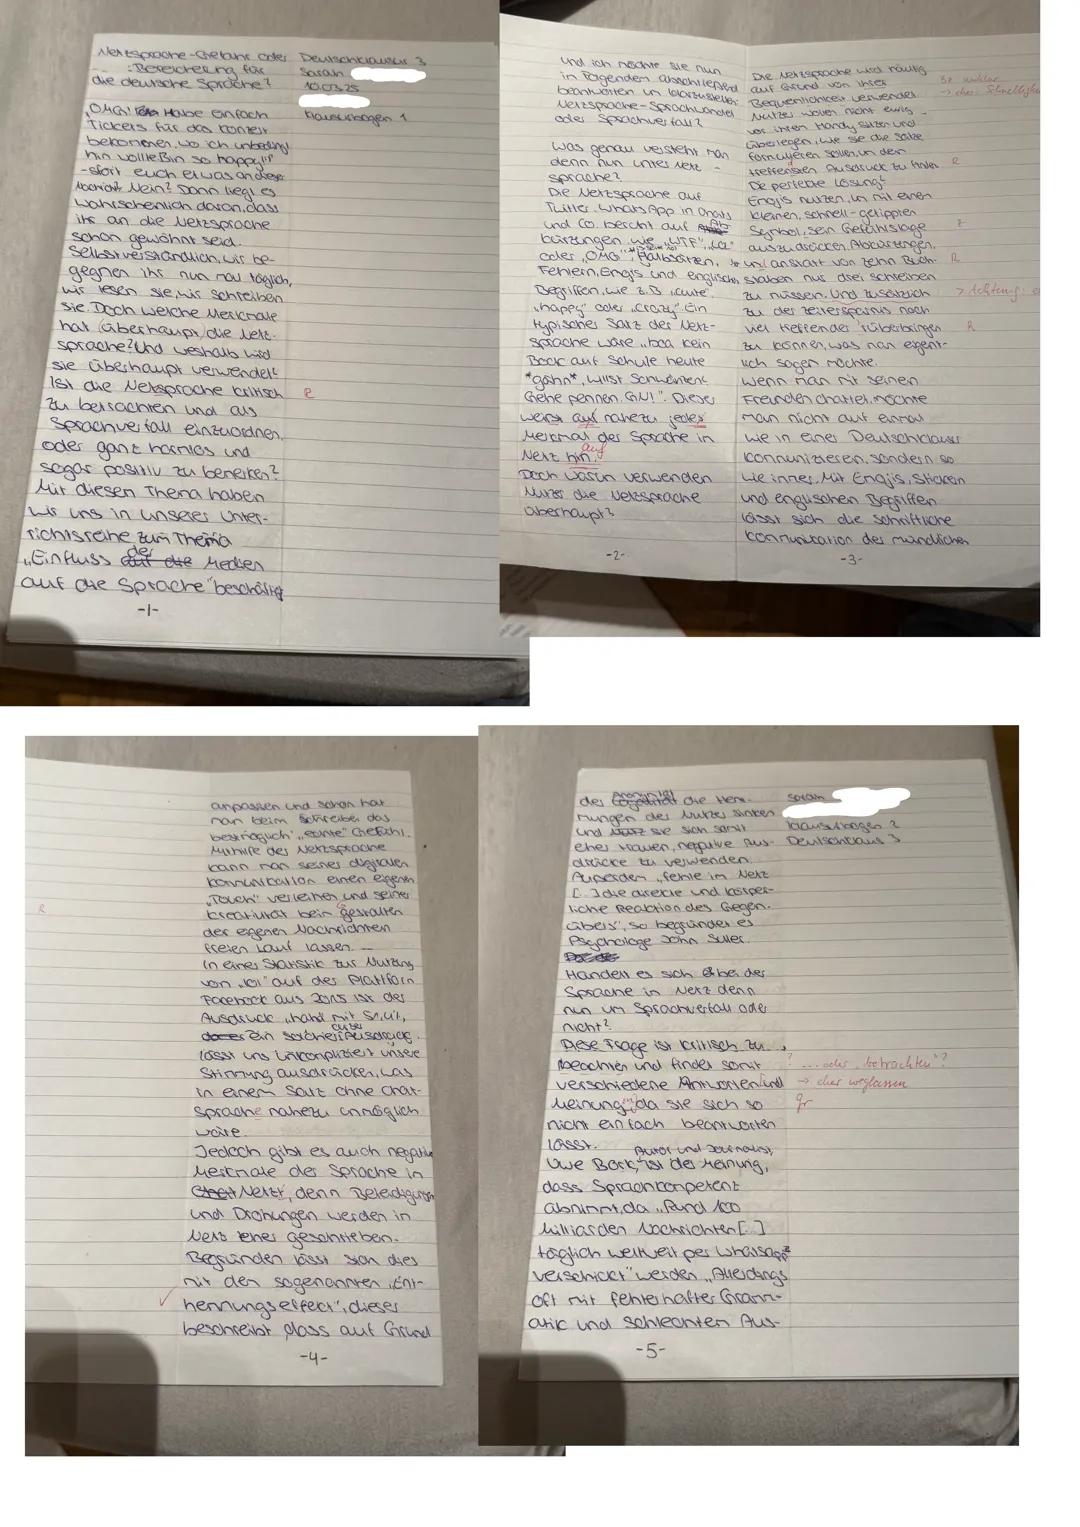 Netzsprache-Gefahr oder
Bereicherung für
die deutsche Sprache?
Deutschklausur 3
Sarah
10.03.25
Klausurbogen 1
"OMG! Habe einfach
Tickets für das Konzert
bekommen, wo ich unbedingt
hin wollte. Bin so happy!!"
-stört euch etwas an dieser
Nachricht? Nein? Dann liegt es
wahrscheinlich daran, dass
ihr an die Netzsprache
schon gewöhnt seid.
Selbstverständlich, wir be-
gegnen ihr nun mal täglich,
wir lesen sie, wir schreiben
sie. Doch welche Merkmale
hat (überhaupt) die Netz-
sprache? Und weshalb wird
sie überhaupt verwendet?
Ist die Netzsprache kritisch
R
zu betrachten und als
Sprachverfall einzuordnen,
oder ganz harmlos und
sogar positiv zu bemerken?
Mit diesen Thema haben
wir uns in unserer Unter-
richtsreihe zum Thema
"Einfluss der Medien
auf die Sprache" beschäftigt
-1-
und ich möchte sie nun
im Folgenden abschließend
beantworten um klarzustellen:
Netzsprache-Sprachwandel
oder Sprachverfall?
Was genau versteht man
denn nun unter Netz-
sprache?
Die Netzsprache auf
Twitter, WhatsApp in Chats
und Co. besteht auf Ab-
kürzungen, wie "WTF", "LOL"
oder "OMG", Halbsätzen,
Fehlern, Emojis und englischen
Begriffen, wie z.B. "cute",
"happy" oder "crazy". Ein
typischer Satz der Netz-
sprache wäre "boa kein
Bock auf Schule heute
*gähn*, willst Schwänzen?
Gehe pennen. GN!". Dieser
weist auf nahezu jedes
Merkmal der Sprache im
auf
Netz hin.
Doch warum verwenden
Nutzer die Netzsprache
überhaupt?
-2-
Die Netzsprache wird häufig
auf Grund von ihrer
Bequemlichkeit verwendet.
Bz unklar
→ eher: Schnelligke
Nutzer wollen nicht ewig
vor ihrem Handy sitzen und
überlegen, wie sie die Sätze
formulieren sollen, um den
treffensten Ausdruck zu finden.
R
Die perfekte Lösung?
Emojis nutzen, um mit einem
kleinen, schnell-getippten
Symbol, sein Gefühlslage
Z
auszudrücken, Abkürzungen,
um anstatt von zehn Buch-
R
staben nur drei schreiben
zu müssen. Und zusätzlich
> Achtung: e
zu der Zeitersparnis noch
viel treffender 'rüberbringen
R
zu können, was man eigent-
lich sagen möchte.
Wenn man mit seinen
Freunden chattet, möchte
man nicht auf einmal
wie in einer Deutschklausur
kommunizieren, sondern so
wie immer. Mit Emojis, Stickern
und englischen Begriffen
lässt sich die schriftliche
Kommunikation der mündlichen
-3-
anpassen und schon hat
man beim Schreiben das
bestmöglich "echte" Gefühl.
Mithilfe der Netzsprache
kann man seiner digitalen
Kommunikation einen eigenen
"Touch" verleihen und seiner
Kreativität beim gestalten
R
der eigenen Nachrichten
freien Lauf lassen.
In einer Statistik zur Nutzung
von "lol" auf der Plattform
Facebook aus 2015 ist der
Ausdruck "haha" mit 51,4%,
Ein solcher kurzer Ausdruck
lässt uns unkompliziert unsere
Stimmung ausdrücken, was
in einem Satz ohne Chat-
sprache nahezu unmöglich
wäre.
Jedoch gibt es auch negative
Merkmale der Sprache im
Netz, denn Beleidigungen
und Drohungen werden im
Netz eher geschrieben.
Begründen lässt sich dies
mit den sogenannten "Ent-
hemmungseffekt", dieser
beschreibt, dass auf Grund
-4-
der Anonymität die Hem-
mungen der Nutzer sinken
und sie sich somit
eher trauen, negative Aus-
drücke zu verwenden.
Außerdem "fehle im Netz
[...] die direkte und körper-
liche Reaktion des Gegen-
übers", so begründet es
Psychologe John Suler.
Sarah
Klausurbogen 2
Deutschklaus 3
Handelt es sich bei der
Sprache im Netz denn
nun um Sprachverfall oder
nicht?
Diese Frage ist kritisch zu
beachten und findet somit
? ...oder "betrachten"?
verschiedene Antworten und
→ eher weglassen
Meinung, da sie sich so
gr
nicht einfach beantworten
lässt.
Autor und Journalist,
Uwe Bork, ist der Meinung,
dass Sprachkompetenz
abnimmt, da "Rund 100
Milliarden Nachrichten [...]
täglich weltweit per Whatsapp
verschickt" werden, "Allerdings
oft mit fehlerhafter Gramm-
atik und schlechten Aus-
-5-